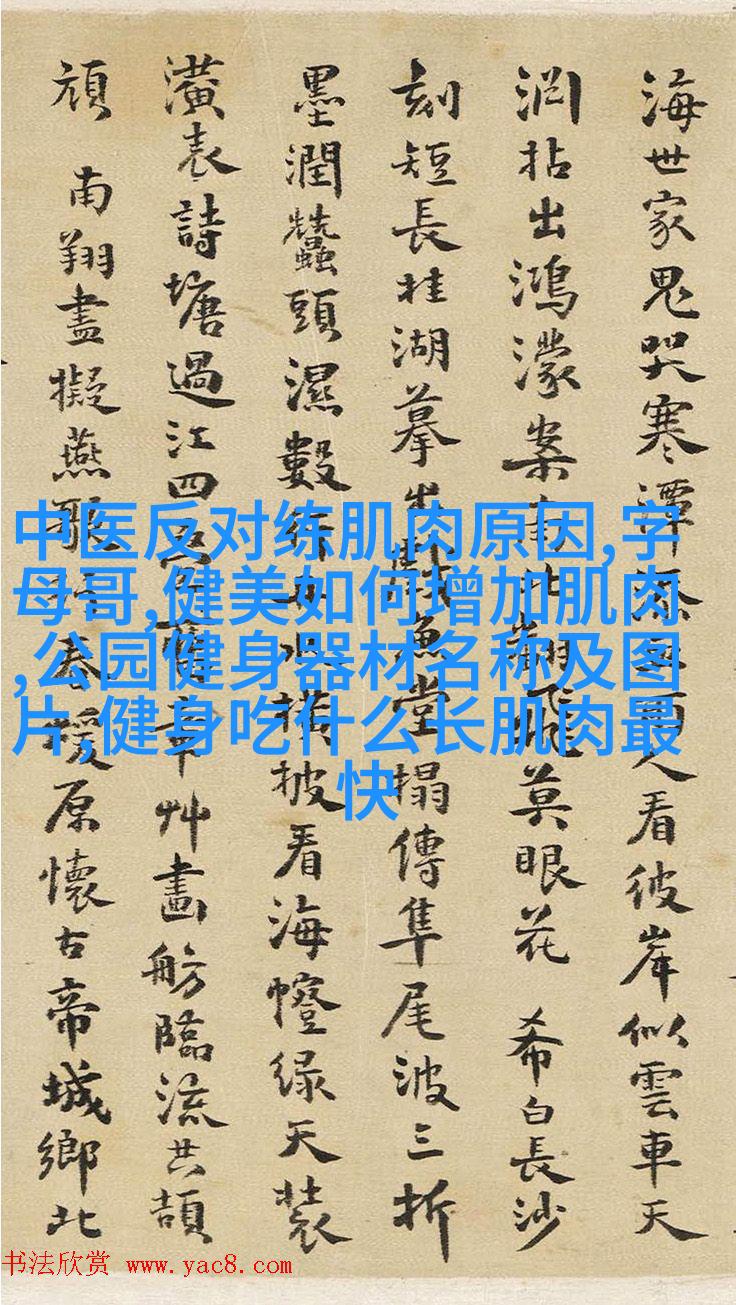 海世家鬼哭寒潭雨人看彼岸似雲車天
淵拈出鴻濛案南北翻飛莫眼花 希白長沙
刻短長桂湖摹出戲魚堂搨傳隼尾波三折
墨潤蠶頭濕數橫披看海幢綠天裝
潢表詩塘過江四章艸畫舫臨流共頡
頏 南翔盡擬燕歌春援原懷古帝城鄉北
中医反对练肌肉原因,字
母哥,健美如何增加肌肉
,公园健身器材名称及图
片,健身吃什么长肌肉最
快
书法欣赏 www.yac8.com